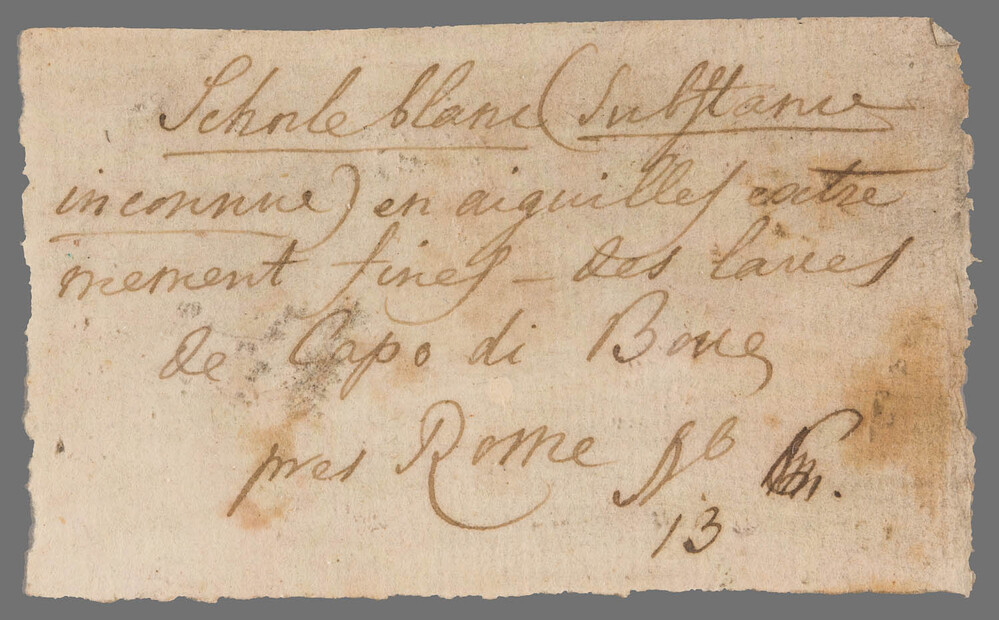 Schorle blanc (Substance
inconnue) en aiguilles extre
mement fines - des laves
de Capo di Bove
pres Rome No
13